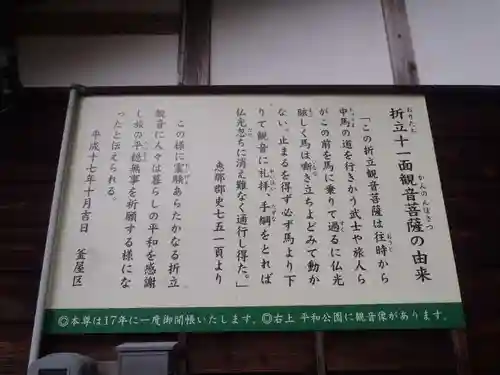 折立十一面観音菩薩の由来
おりたと
かんのんぼさつ
「この折立観音菩薩は往時から
おうじ
中馬の道を行きかう武士や旅人ら
がこの前を馬に乗りて過るに仏光
すぐ
眩しく馬は嘶き立ちよどみて動か
ない。止まるを得ず必ず馬より下
りて観音に礼拝、手綱をとれば
仏光忽ちに消え難なく通行し得た。」
恵那郡史七五一頁より
この様に霊験あらたかなる折立
観音に人々は暮らしの平和を感謝
し旅の平穏無事を祈願する様にな
ったと伝えられる。
平成十七年十月吉日
釜屋区
◎本尊は17年に一度御開帳いたします。◎右上 平和公園に観音像があります。